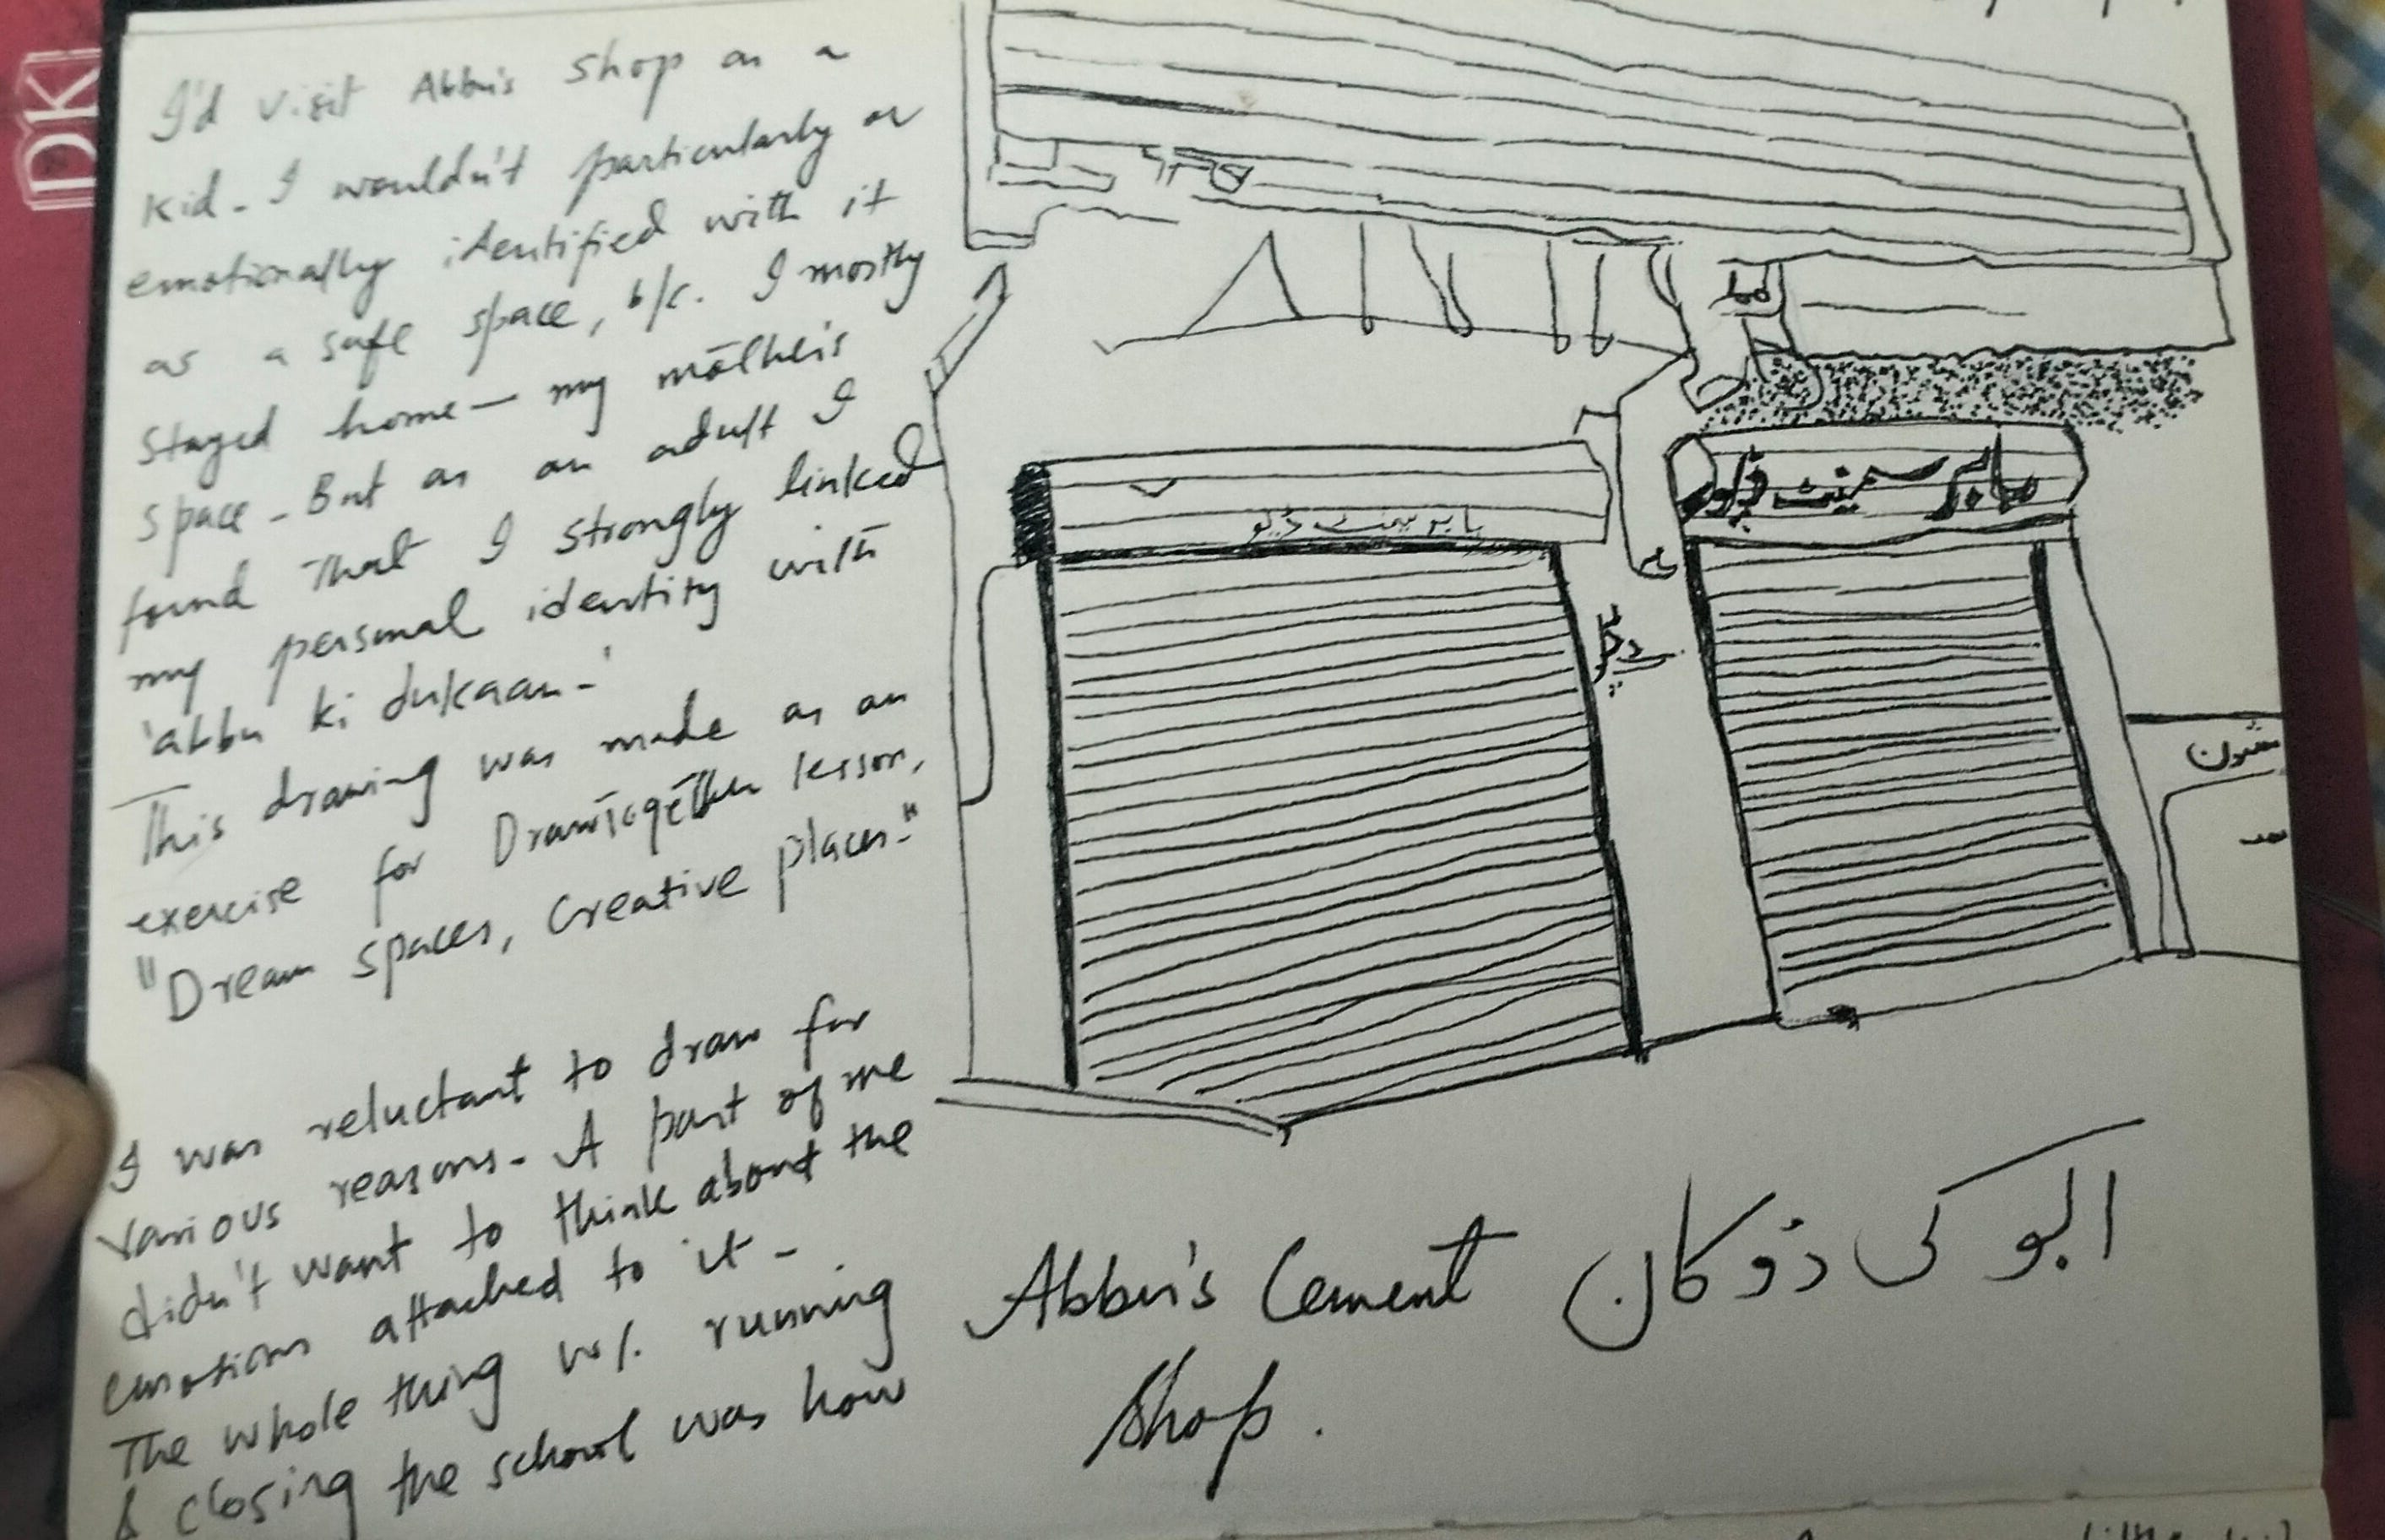 DK
I'd visit Abbu's shop as a
kid. I wouldn't particularly or
emotionally identified with it
as a safe space, b/c. I mostly
stayed home — my mother's
space. But as an adult I
found that I strongly linked
my personal identity with
'abbu ki dukaan.'
This drawing was made as an
exercise for DrawTogether lesson,
"Dream spaces, Creative places."
I was reluctant to draw for
various reasons. A part of me
didn't want to think about the
emotions attached to it.
The whole thing w/. running
& closing the school was how
بابر سیمنٹ ڈپو
بابر سیمنٹ ڈپو
ابو کی دُوکان
Abbu's Cement
Shop.